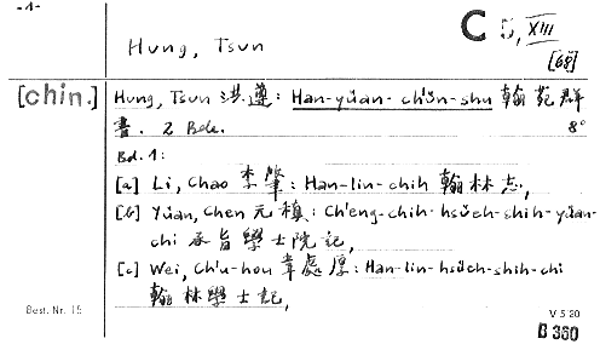 -1-
Hung, Tsun
C 5, XIII
[68]
[chin.] Hung, Tsun 洪遵: Han-yüan-ch'ün-shu 翰苑群
書. 2 Bde. 8°
Bd. 1:
[a] Li, Chao 李肇: Han-lin-chih 翰林志,
[b] Yüan, Chen 元稹: Ch'eng-chih-hsüeh-shih-yüan-
chi 承旨學士院記,
[c] Wei, Ch'u-hou 韋處厚: Han-lin-hsüeh-shih-chi
翰林學士記,
Best. Nr. 15
V 5 20
B 360